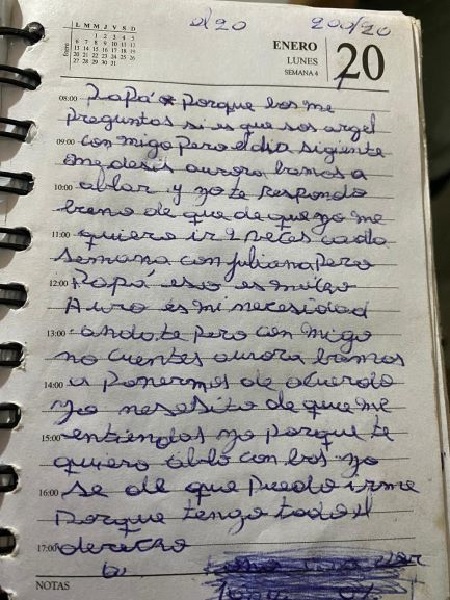 d20 200/20
Enero
L M M J V S D
1 2 3 4 5
6 7 8 9 10 11 12
13 14 15 16 17 18 19
20 21 22 23 24 25 26
27 28 29 30 31
ENERO
LUNES
SEMANA 4
20
08:00 Papá porque bos me
preguntas si es que sos angel
09:00 con migo pero el dia sigiente
me desis aurora bamos a
10:00 ablar y yo te respondo
bueno de que de que yo me
11:00 quiero ir 2 veces cada
semana con juliana pero
12:00 Papá eso es mucho
Auro es mi necesidad
13:00 andate pero con migo
no cuentes aurora bamos
14:00 a ponermos de acuerdo
yo nesesito de que me
15:00 entiendas yo porque te
quiero ablo con bos yo
16:00 se de que puedo irme
porque tengo todo el
17:00 derecho
NOTAS